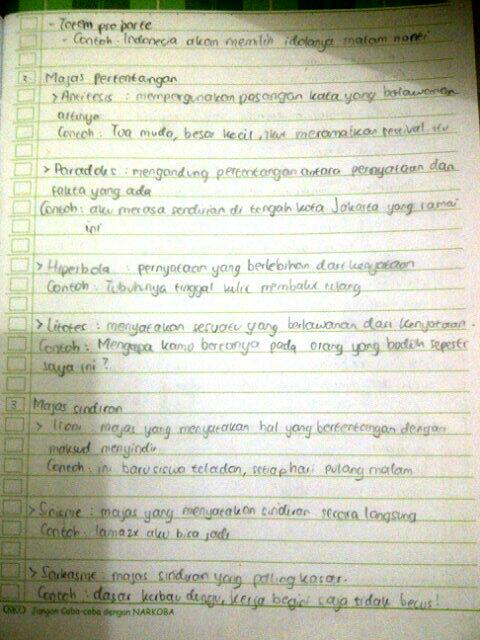 - Totem pro parte
- Contoh: Indonesia akan memilih idolanya malam nanti
2. Majas Pertentangan
> Antitesis : mempergunakan pasangan kata yang berlawanan
artinya
Contoh: Tua muda, besar kecil, ikut meramaikan festival itu
> Paradoks : mengandung pertentangan antara pernyataan dan
fakta yang ada
Contoh: aku merasa sendirian di tengah kota Jakarta yang ramai
ini
> Hiperbola : pernyataan yang berlebihan dari kenyataan
Contoh: Tubuhnya tinggal kulit membalut tulang
> Litotes : menyatakan sesuatu yang berlawanan dari kenyataan.
Contoh: Mengapa kamu bertanya pada orang yang bodoh seperti
saya ini?
3. Majas sindiran
> Ironi : majas yang menyatakan hal yang bertentangan dengan
maksud menyindir
Contoh: ini baru siswa teladan, setiap hari pulang malam
> Sinisme : majas yang menyatakan sindiran secara langsung
Contoh: lama2x aku bisa jadi
> Sarkasme : majas sindiran yang paling kasar.
Contoh: dasar kerbau dungu, kerja begini saja tidak becus!
Jangan Coba-coba dengan NARKOBA